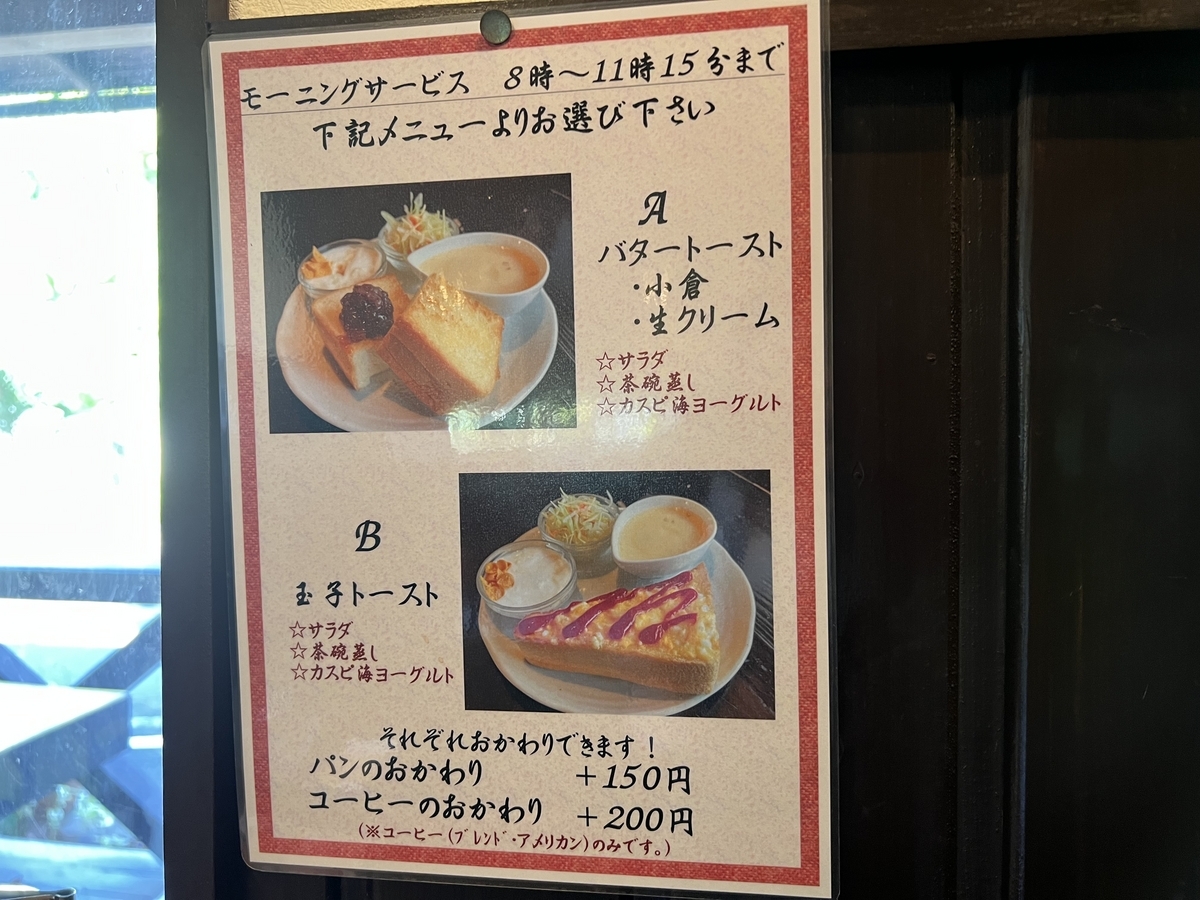 モーニングサービス 8時～11時15分まで
下記メニューよりお選び下さい
A
バタートースト
・小倉
・生クリーム
☆サラダ
☆茶碗蒸し
☆カスピ海ヨーグルト
B
玉子トースト
☆サラダ
☆茶碗蒸し
☆カスピ海ヨーグルト
それぞれおかわりできます！
パンのおかわり ＋150円
コーヒーのおかわり ＋200円
(※コーヒー(ブレンド・アメリカン)のみです。)